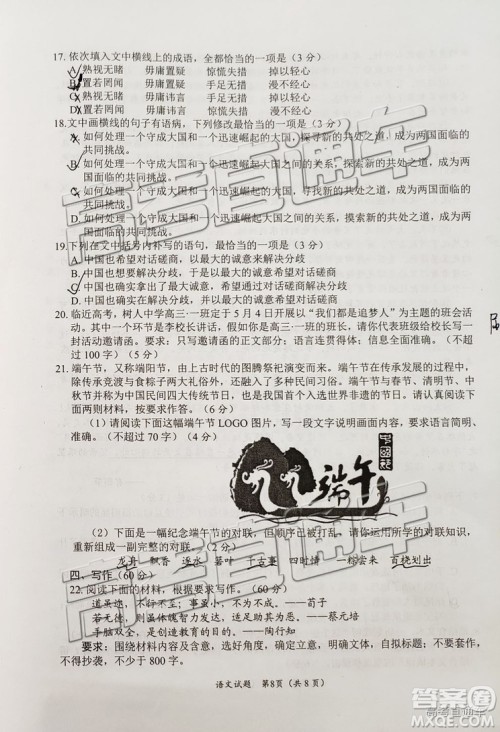 17.依次填入文中横线上的成语，全都恰当的一项是（3 分）
A.熟视无睹 毋庸置疑 惊慌失措 掉以轻心
B.置若罔闻 毋庸置疑 手足无措 漫不经心
C.熟视无睹 毋庸讳言 手足无措 漫不经心
D.置若罔闻 毋庸讳言 惊慌失措 掉以轻心
18.文中画横线的句子有语病，下列修改最恰当的一项是（3 分）
A.如何处理一个守成大国和一个迅速崛起的大国，探寻新的共处之道，成为两国面临的
共同挑战。
B.如何处理一个守成大国和一个迅速崛起大国的关系，探索新的共处之道，成为两国面
临的共同挑战。
C.如何处理一个守成大国和一个迅速崛起的大国关系，寻找新的共存之道，成为两国面
临的共同挑战。
D.如何处理一个守成大国和一个迅速崛起大国之间的关系，摸索新的共存之道，成为两
国面临的共同挑战。
19.下列在文中括号内补写的语句，最恰当的一项是（3 分）
A.中国也希望以对话磋商，以最大的诚意来解决分歧
B.中国也想要解决分歧，并以最大的诚意希望对话磋商
C.中国也确实拿出了最大诚意，希望以对话解决分歧
D.中国也希望解决分歧，于是以最大的诚意希望对话磋商
20.临近高考，树人中学高三·一班定于 5 月 4 日开展以“我们都是追梦人”为主题的班会活
动，其中一个环节是李校长讲话，假如你是高三·一班的班长，请你代表班级给校长写
一则邀请。要求：只写邀请函的正文部分；语言连贯得体；信息全面准确。（不超过
100 字）（5 分）
21.端午节，又称端阳节，由上古时代的图腾祭祀演变而来。端午节在传承发展中，
除传承竞渡与食粽子两大礼俗外，还融入了其他丰富多彩的民俗。端午与春节、清明、中
秋节并称为中国民间四大传统节日，世界上一些国家和地区也有庆贺的活动。请认真阅读下
面两则材料，按要求作答。（6 分）
（1）请阅读下面这幅端午节 LOGO 图片，写一段文字说明画面内容，要求语言简明、
准确。（不超过 70 字）（4 分）
中國節
端午
（2）下面是一幅纪念端午节的对联，但是这幅对联已被打乱，请你运用所学的对联知识，
重新组成一副完整的对联。（2分）
龙舟 飘香 逐水 箬叶 千古事 四时情 一棕尝来 百桡划出
四、写作（60 分）
22.阅读下面的材料，根据要求写作。（60 分）
道虽迩，不行不至；事虽小，不为不成。——荀子
——蔡元培
手脑双全，是创造教育的目的。——陶行知
要求：围绕材料内容及含意，选好角度，确定立意，明确文体，自拟标题；不要套作，
不得抄袭，不少于 800 字。
语文试题 第8页（共 8 页）
高考直通车
答案圈
MXQE.COM
高考直通车